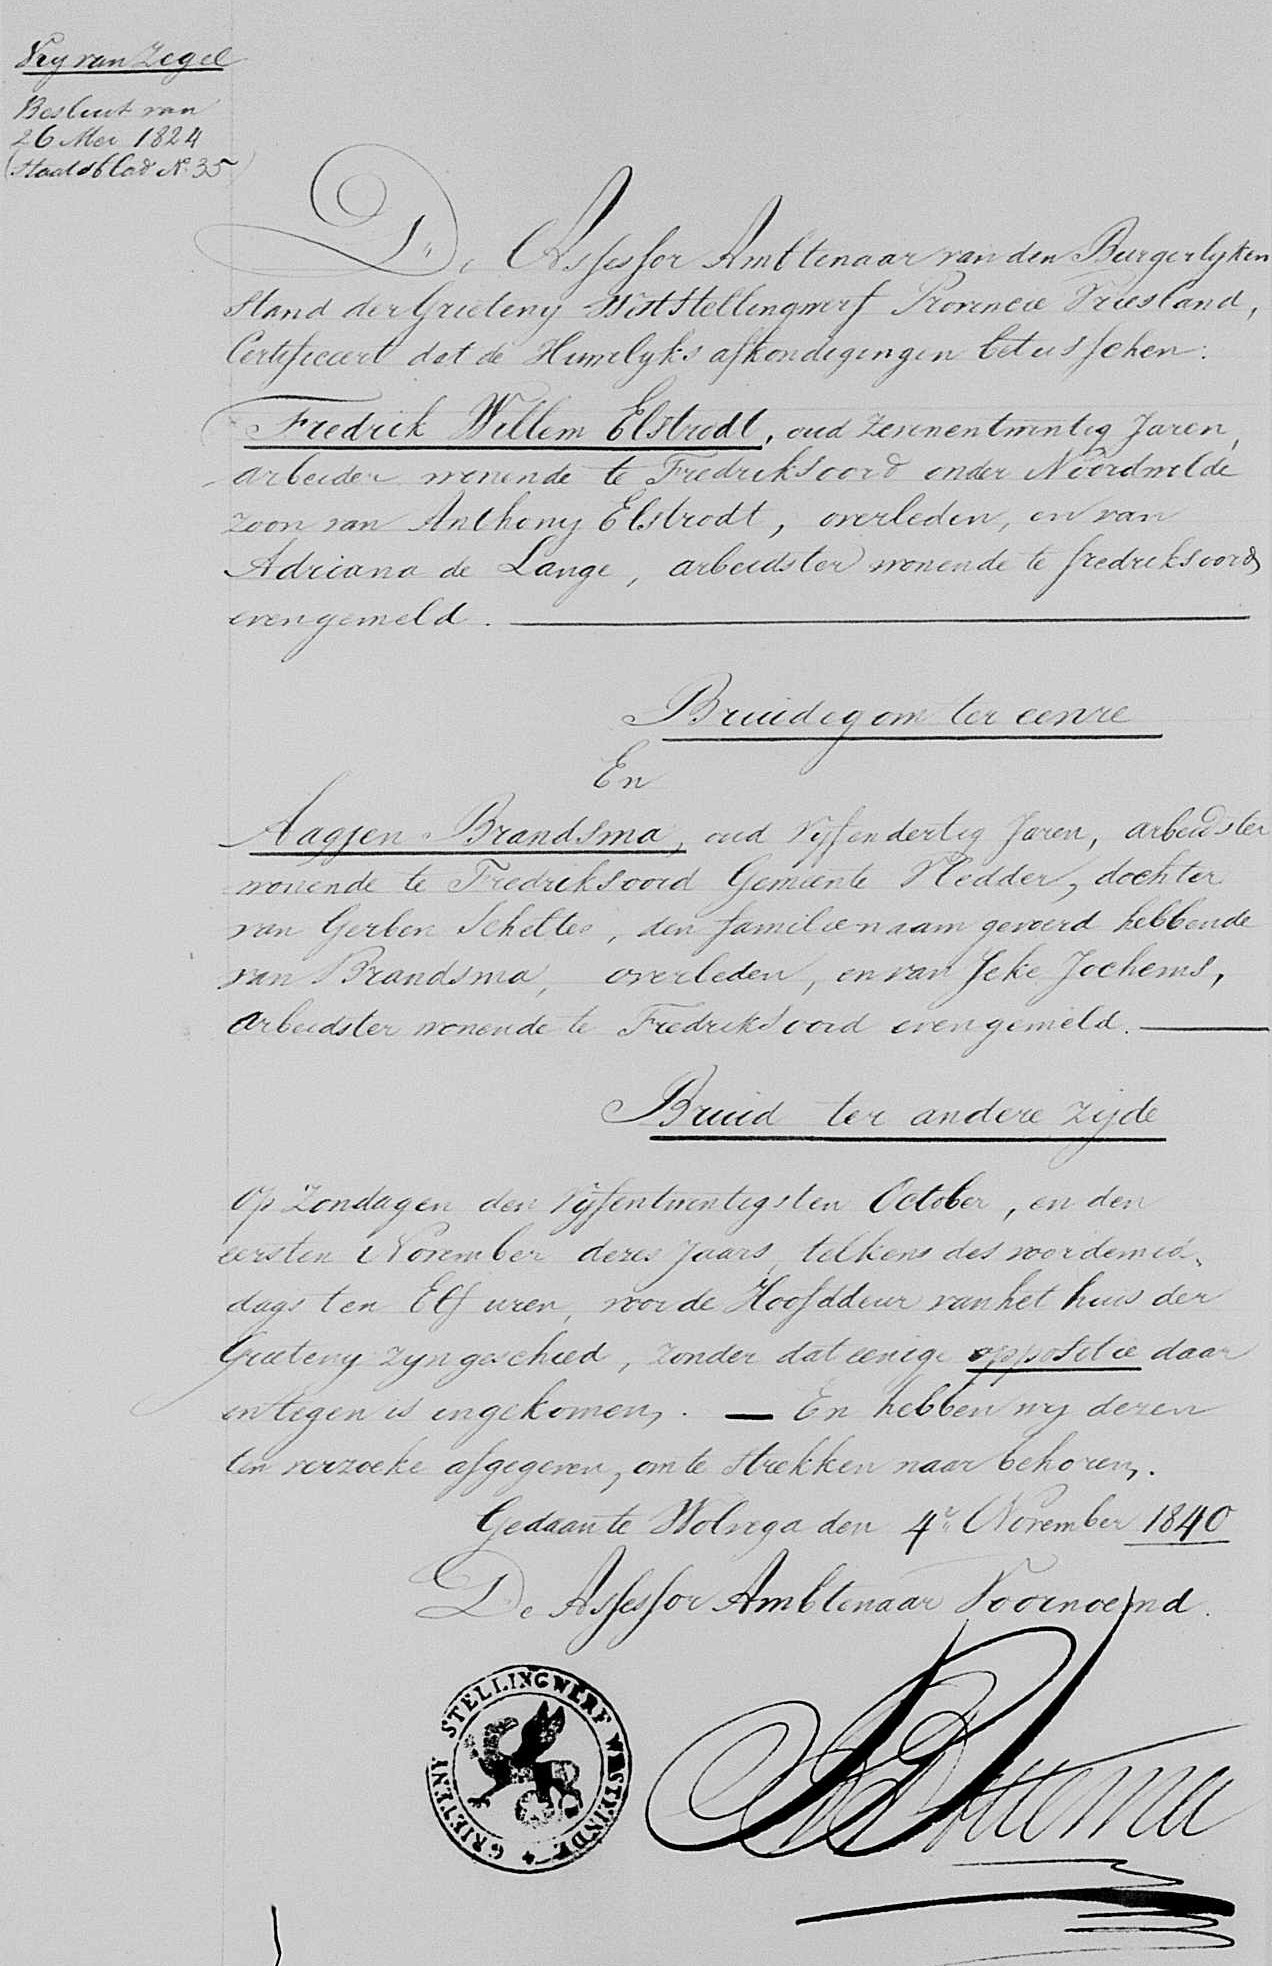 Vry van Zegel
Besluit van
26 Mei 1824
(Staadsblad N. 35)
De Assessor Ambtenaar van den Burgerlyken
Stand der Grieteny WestStellingwerf Provincie Vriesland,
Certificeert dat de Huwelyks afkondigingen betusschen:
Fredrik Willem Elstrodt, oud Zevenentwintig Jaren,
arbeider wonende te Fredriksoord onder Noordwolde
zoon van Anthony Elstrodt, overleden, en van
Adriana de Lange, arbeidster wonende te fredriksoord
evengemeld.
Bruidegom ter eenre
En
Aagjen Brandsma, oud Vyfendertig Jaren, arbeidster
wonende te Fredriksoord Gemeente Vledder, dochter
van Gerben Scheltes, den familienaam gevoerd hebbende
van Brandsma, overleden, en van Jeke Jochems,
arbeidster wonende te Fredriksoord evengemeld.
Bruid ter andere zyde
Op Zondagen den Vyfentwintigsten October, en den
eersten November dezes Jaars, telkens des voordemid,
dags ten Elf uren, voor de Hoofddeur van het huis der
Grieteny zyn geschied, zonder dat eenige oppositie daar
entegen is ingekomen. — En hebben wy dezen
ten verzoeke afgegeven, om te strekken naar behoren.
Gedaan te Wolvega den 4e November 1840
De Assessor Ambtenaar Voornoemd.
GRIETENY STELLINGWERF WESTEINDE